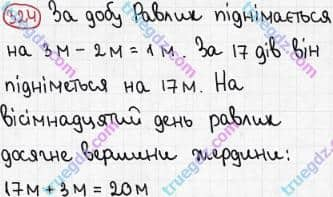 324 За добу Равлик піднімається
на 3 м - 2 м = 1 м. За 17 дів він
підніметься на 17 м. На
вісімнадцятий день равлик
досягне вершини жердини:
17 м + 3 м = 20 м